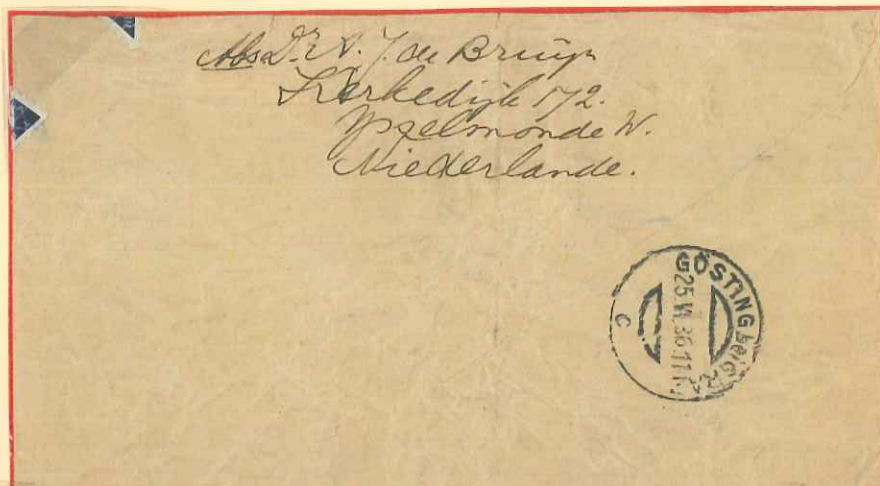 Abs Dr A. J. de Bruijn
Kerkedijk 172.
Ysselmonde W.
Niederlande.
GÖSTING bei GRA
25.VI.36.11
C